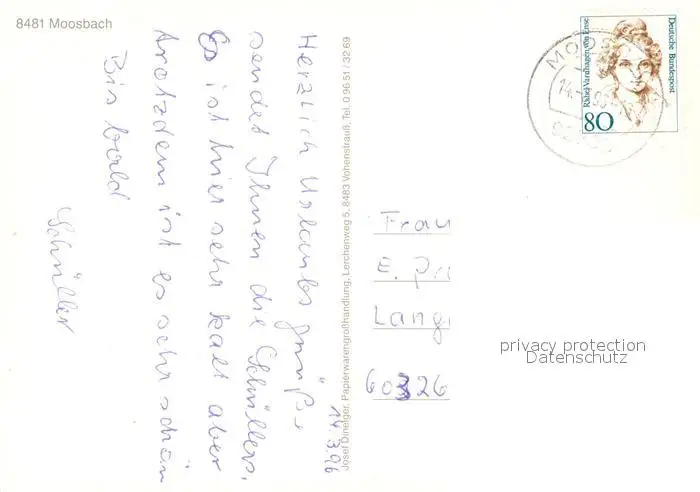 8481 Moosbach
Herzlich Urlaubs grüße
sendet Ihnen die Schüllers.
Es ist hier sehr kalt aber
trotzdem ist es sehr schön
Bis bald
Schüller
14.3.96
Josef Dineiger, Papierwarengroßhandlung, Lerchenweg 5, 8483 Vohenstrauß, Tel. 0 96 51 / 32 69
Deutsche Bundespost
Rahel Varnhagen von Ense
80
Frau
E.
Lang
60326
privacy protection
Datenschutz